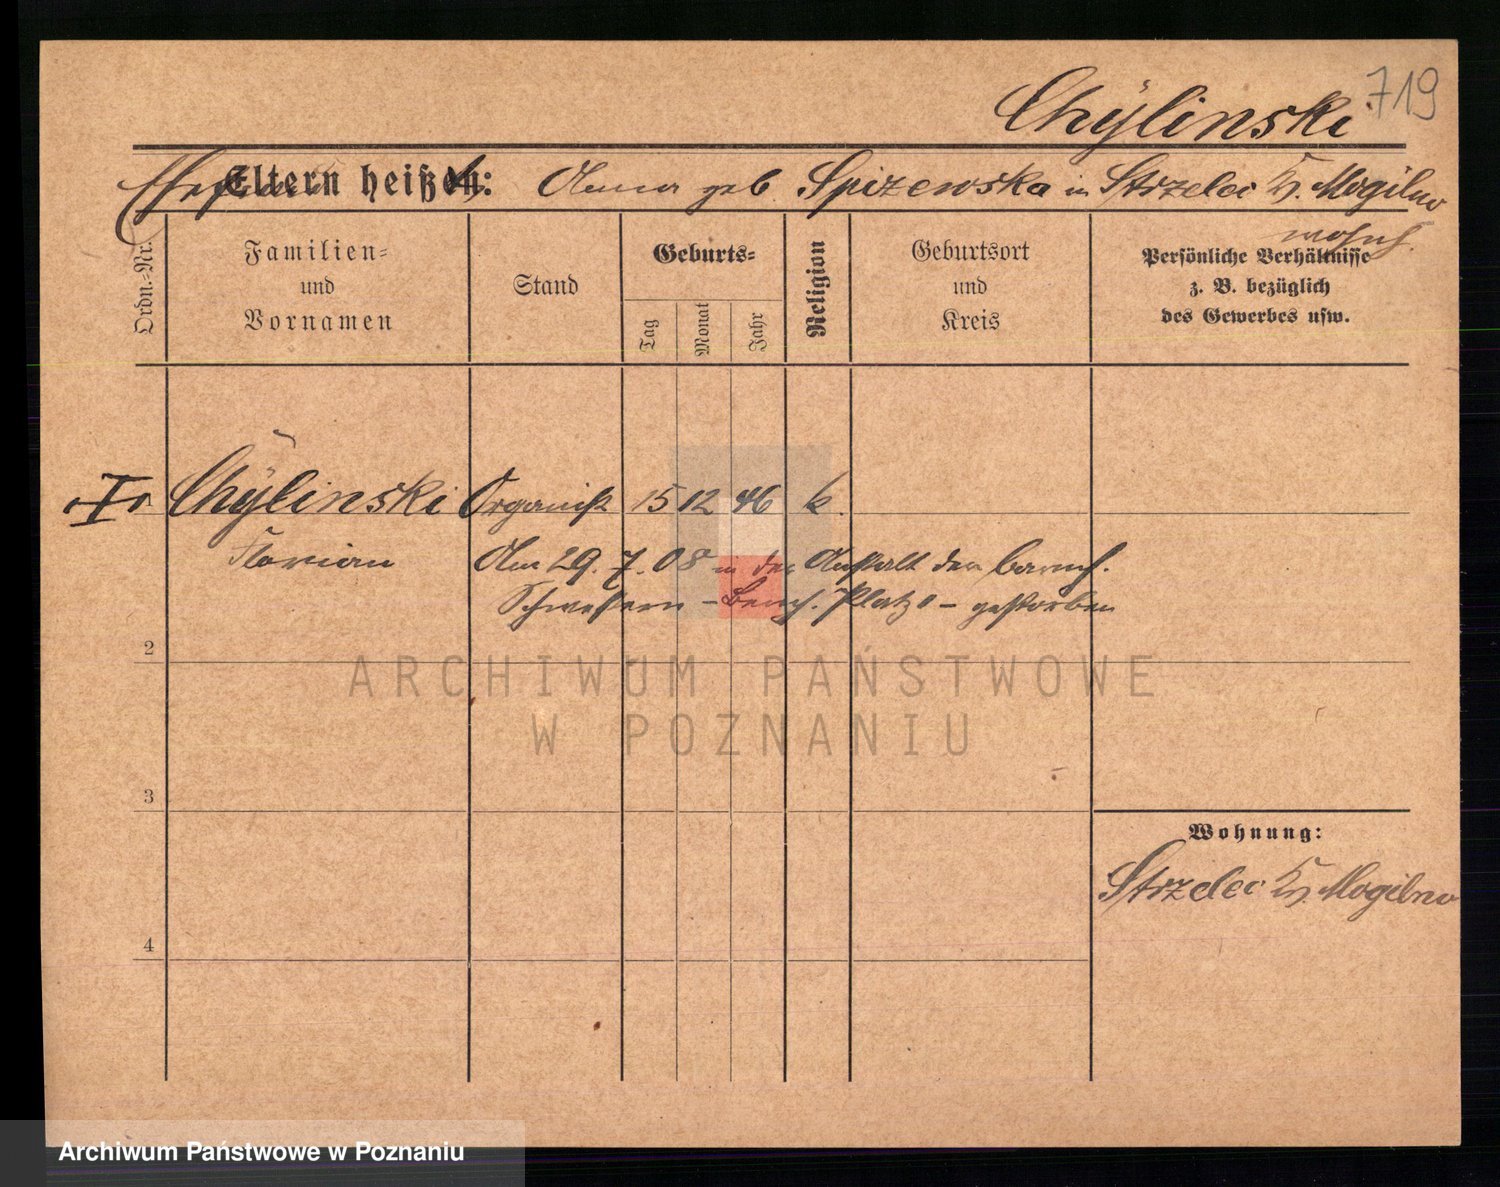 719
Chylinski
Ehefrau Eltern heißen: Anna geb Spizewska in Strzelce Kr. Mogilno
wohnh.
Ordn.-Nr.
Familien=
und
Vornamen
Stand
Geburts=
Tag
Monat
Jahr
Religion
Geburtsort
und
Kreis
Persönliche Verhältnisse
z. B. bezüglich
des Gewerbes usw.
I Chylinski Organist 15 12 46 k.
Florian Am 29.7.08 in der Anstalt der barmh.
Schwestern – Bernh. Platz – gestorben
2
ARCHIWUM PAŃSTWOWE
W POZNANIU
3
Wohnung:
Strzelce Kr. Mogilno
4
Archiwum Państwowe w Poznaniu